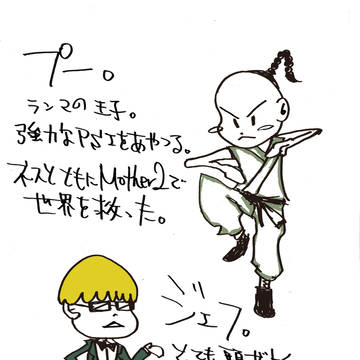 プー。
ランマの王子。
強力なPSIをあやつる。
ネスとともにMother2で
世界を救った。
ジェフ。
とても頭がよく